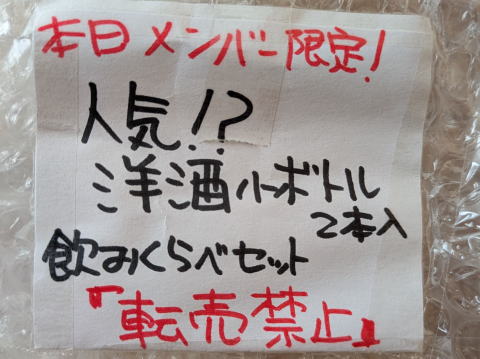 本日メンバー限定!
人気!?
洋酒ハーボトル
2本入
飲みくらべセット
『転売禁止』